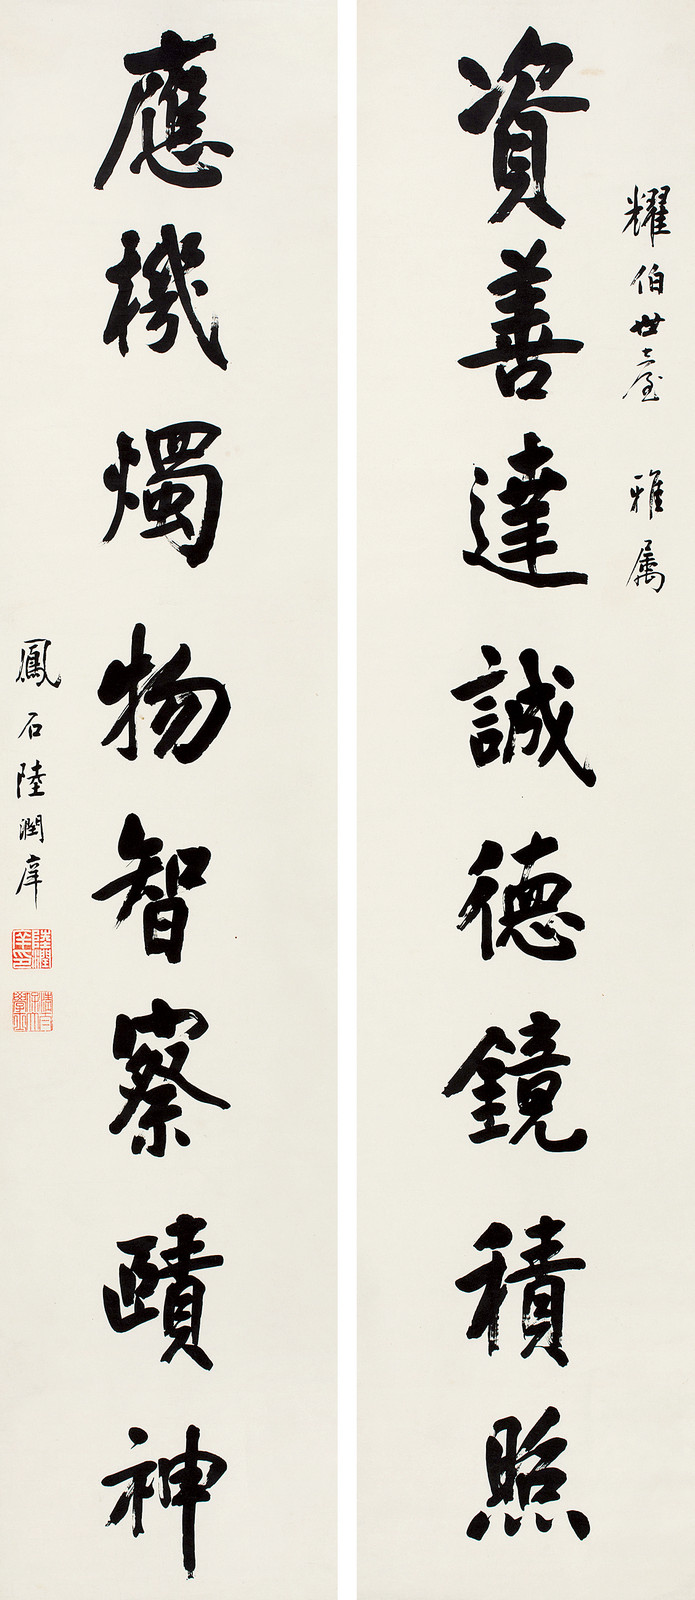 耀伯世臺 雅属
資善達誠德鏡積照
應機燭物智察賾神
鳳石陸潤庠
陸潤庠印